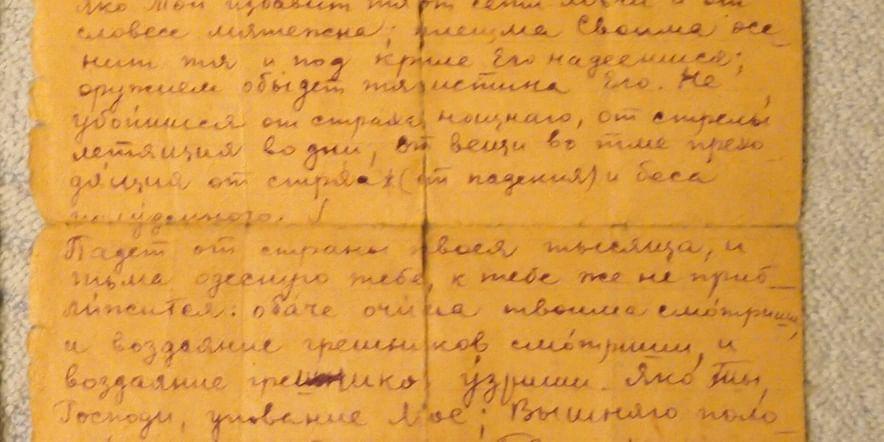 яко Той избавит тя от сети ловчи и от
словесе мятежна; плещма Своима осе
нит тя и под криле Его надеешися;
оружием обыдет тя истина Его. Не
убоишися от страха нощнаго, от стрелы
летящия во дни, от вещи во тме прехо
дящия от сряща (от падения) и беса
полуденного.
Падет от страны твоея тысяща, и
тьма одесную тебе, к тебе же не приб
лижится: оба́че очи́ма твоима смо́триши,
и воздаяние грешников смо́триши, и
воздаяние грешнико у́зриши. Яко Ты,
Господи, упование Мое; Вышняго поло